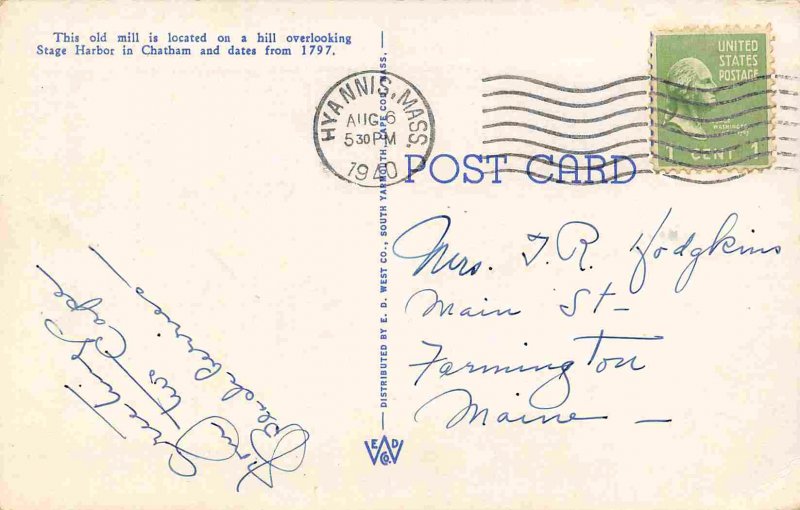 This old mill is located on a hill overlooking
Stage Harbor in Chatham and dates from 1797.
HYANNIS, MASS.
AUG 6
5 30 PM
1940
UNITED
STATES
POSTAGE
WASHINGTON
1 CENT 1
POST CARD
DISTRIBUTED BY E. D. WEST CO., SOUTH YARMOUTH, CAPE COD, MASS.
Mrs. T. R. Hodgkins
Main St-
Farmington
Maine -
Greetings
from two Cape
Blackberries
E D
W
CO.